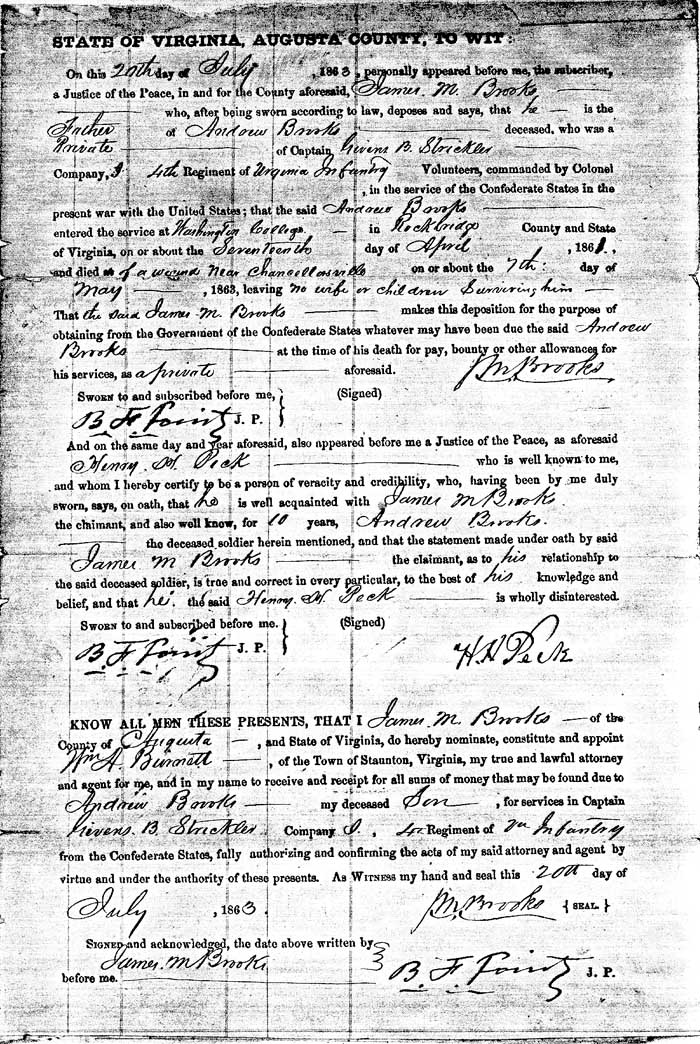 STATE OF VIRGINIA, AUGUSTA COUNTY, TO WIT:
On this 20th day of July, 1863, personally appeared before me, the subscriber,
a Justice of the Peace, in and for the County aforesaid, James. M. Brooks
who, after being sworn according to law, deposes and says, that he is the
Father of Andrew Brooks deceased, who was a
Private of Captain Givens B. Strickler
Company, I 4th Regiment of Virginia Infantry Volunteers, commanded by Colonel
, in the service of the Confederate States in the
present war with the United States; that the said Andrew Brooks
entered the service at Washington College in Rockbridge County and State
of Virginia, on or about the Seventeenth day of April, 1861.,
and died of a wound near Chancellorsville on or about the 7th: day of
May, 1863, leaving no wife or children Surviving him
That the said James M. Brooks makes this deposition for the purpose of
obtaining from the Government of the Confederate States whatever may have been due the said Andrew
Brooks at the time of his death for pay, bounty or other allowances for
his services, as a private aforesaid. J M. Brooks
SWORN to and subscribed before me, (Signed)
B. F. J. P.
And on the same day and year aforesaid, also appeared before me a Justice of the Peace, as aforesaid
Henry. H. Peck who is well known to me,
and whom I hereby certify to be a person of veracity and credibility, who, having been by me duly
sworn, says, on oath, that he is well acquainted with James M Brooks.
the claimant, and also well know, for 10 years, Andrew Brooks.
the deceased soldier herein mentioned, and that the statement made under oath by said
James M Brooks the claimant, as to his relationship to
the said deceased soldier, is true and correct in every particular, to the best of his knowledge and
belief, and that he. the said Henry. H. Peck is wholly disinterested.
SWORN to and subscribed before me. (Signed)
B. F. J. P.
H. H Peck
KNOW ALL MEN THESE PRESENTS, THAT I James. M. Brooks of the
County of Augusta, and State of Virginia, do hereby nominate, constitute and appoint
Wm A. Burnett, of the Town of Staunton, Virginia, my true and lawful attorney
and agent for me, and in my name to receive and receipt for all sums of money that may be found due to
Andrew Brooks my deceased Son, for services in Captain
Givens. B. Strickler. Company I., 4th Regiment of Va Infantry
from the Confederate States, fully authorizing and confirming the acts of my said attorney and agent by
virtue and under the authority of these presents. AS WITNESS my hand and seal this 20th day of
July, 1863. J M. Brooks {SEAL.}
SIGNED and acknowledged, the date above written by
James. M Brooks
before me. B. F. J. P.